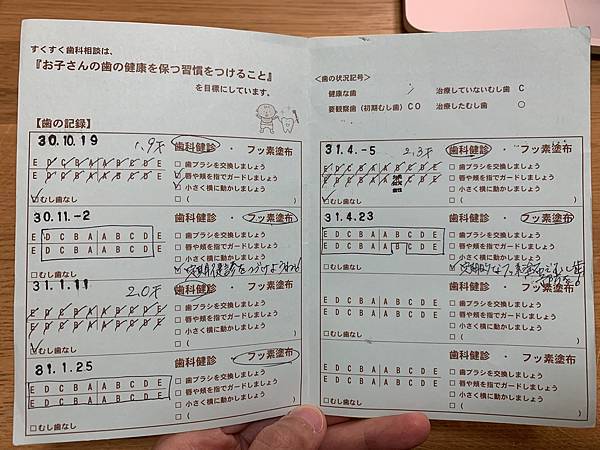 すくすく歯科相談は、
『お子さんの歯の健康を保つ習慣をつけること』
を目標にしています。
【歯の記録】
30.10.19
1.9才
歯科健診 ・ フッ素塗布
E D C B A A B C D E
E D C B A A B C D E
□ 歯ブラシを交換しましょう
□ 唇や頬を指でガードしましょう
□ 小さく横に動かしましょう
□ (
□むし歯なし
30.11.-2
歯科健診 ・ フッ素塗布
E D C B A A B C D E
E D C B A A B C D E
□ 歯ブラシを交換しましょう
□ 唇や頬を指でガードしましょう
□ 小さく横に動かしましょう
定期健診をつづけましょう
□むし歯なし
31.1.11
2.0才
歯科健診 ・ フッ素塗布
E D C B A A B C D E
E D C B A A B C D E
□ 歯ブラシを交換しましょう
□ 唇や頬を指でガードしましょう
□ 小さく横に動かしましょう
□ (
□むし歯なし
31.1.25
歯科健診 ・ フッ素塗布
E D C B A A B C D E
E D C B A A B C D E
□ 歯ブラシを交換しましょう
□ 唇や頬を指でガードしましょう
□ 小さく横に動かしましょう
□ (
□むし歯なし
<歯の状況記号>
健康な歯 / 治療していないむし歯 C
要観察歯(初期むし歯)CO 治療したむし歯 ○
31.4.-5
2.3才
歯科健診 ・ フッ素塗布
E D C B A A B C D E
E D C B A A B C D E
□ 歯ブラシを交換しましょう
□ 唇や頬を指でガードしましょう
□ 小さく横に動かしましょう
□ (
□むし歯なし
31.4.23
歯科健診 ・ フッ素塗布
E D C B A A B C D E
E D C B A A B C D E
□ 歯ブラシを交換しましょう
□ 唇や頬を指でガードしましょう
□ 小さく横に動かしましょう
定期的なフッ素塗布でむし歯
□むし歯なし
歯科健診 ・ フッ素塗布
E D C B A A B C D E
E D C B A A B C D E
□ 歯ブラシを交換しましょう
□ 唇や頬を指でガードしましょう
□ 小さく横に動かしましょう
□ (
□むし歯なし
歯科健診 ・ フッ素塗布
E D C B A A B C D E
E D C B A A B C D E
□ 歯ブラシを交換しましょう
□ 唇や頬を指でガードしましょう
□ 小さく横に動かしましょう
□ (
□むし歯なし